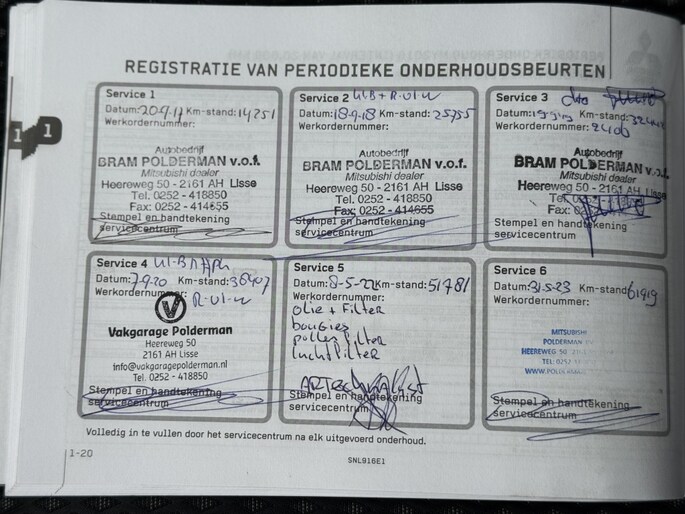 REGISTRATIE VAN PERIODIEKE ONDERHOUDSBEURTEN
1 1
Service 1
Datum: 20-9-17 Km-stand: 14251
Werkordernummer:
Autobedrijf
BRAM POLDERMAN v.o.f.
Mitsubishi dealer
Heereweg 50 - 2161 AH Lisse
Tel. 0252 - 418850
Fax: 0252 - 414655
Stempel en handtekening
servicecentrum
Service 2
Datum: 18-9-18 Km-stand: 25755
Werkordernummer:
Autobedrijf
BRAM POLDERMAN v.o.f.
Mitsubishi dealer
Heereweg 50 - 2161 AH Lisse
Tel. 0252 - 418850
Fax: 0252 - 414655
Stempel en handtekening
servicecentrum
Service 3
Datum: Km-stand:
Werkordernummer:
Autobedrijf
BRAM POLDERMAN v.o.f.
Mitsubishi dealer
Heereweg 50 - 2161 AH Lisse
Tel. 0252
Fax: 02
Stempel en handtekening
servicecentrum
Service 4
Datum: 7-9-20 Km-stand: 38407
Werkordernummer:
V
Vakgarage Polderman
Heereweg 50
2161 AH Lisse
info@vakgaragepolderman.nl
Tel. 0252 - 418850
Stempel en handtekening
servicecentrum
Service 5
Datum: 8-5-22 Km-stand: 51781
Werkordernummer:
olie + Filter
bougies
pollen filter
luchtfilter
Stempel en handtekening
servicecentrum
Service 6
Datum: 31-5-23 Km-stand: 61919
Werkordernummer:
MITSUBISHI
POLDERMAN
HEEREWEG 50
Stempel en handtekening
servicecentrum
Volledig in te vullen door het servicecentrum na elk uitgevoerd onderhoud.
1-20
SNL916E1